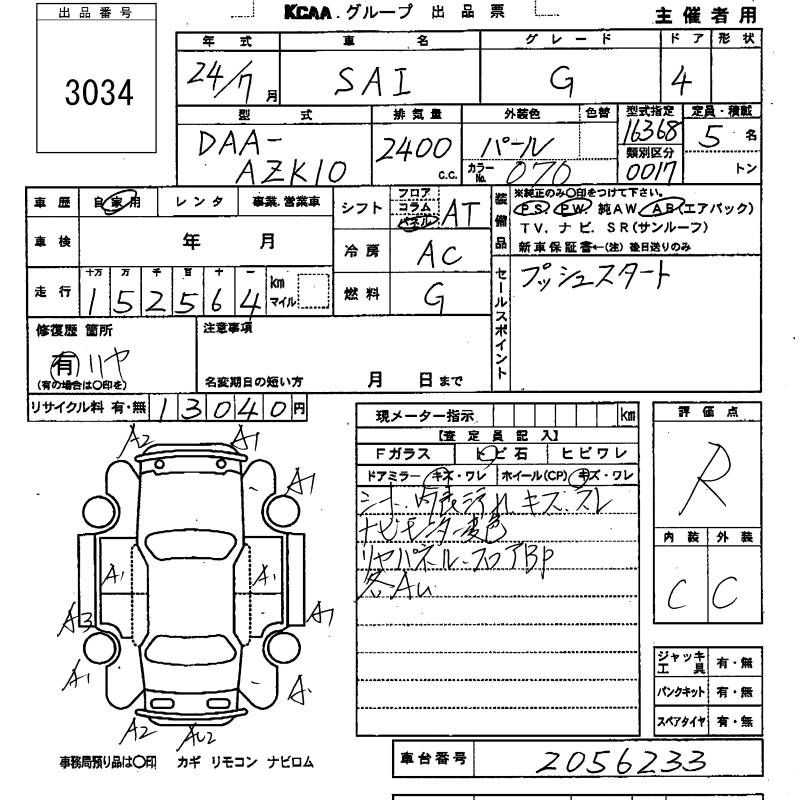 出品番号 KCAA.グループ 出品票 主催者用
3034
年式 車名 グレード ドア 形状
24/7月 SAI G 4
型式 排気量 外装色 色替 型式指定 定員・積載
DAA-AZK10 2400 c.c. パール 16368 5名
カラーNo. 070 類別区分 0017 トン
車歴 自家用 レンタ 事業.営業車
シフト フロア コラム パネル AT
装備品 ※純正のみ〇印をつけて下さい。
PS. PW. 純AW. AB(エアバック)
TV. ナビ. SR(サンルーフ)
新車保証書←(注) 後日送りのみ
車検 年 月
冷房 AC
走行 十万 万 千 百 十 一
152564 km マイル
燃料 G
セールスポイント プッシュスタート
修復歴 箇所
有 リヤ
(有の場合は〇印を)
注意事項
名変期日の短い方 月 日まで
リサイクル料 有・無 13040円
現メーター指示 km
【査定員記入】
Fガラス トビ石 ヒビワレ
ドアミラー キズ・ワレ ホイール(CP) キズ・ワレ
シート、内装汚れ キズ、スレ
ナビモニター変色
リヤパネル、フロアBP
各AU
評価点
R
内装 外装
C C
ジャッキ工具 有・無
パンクキット 有・無
スペアタイヤ 有・無
A2 A1
A1
A1 A1
A3 A1
A1
A2 AU2
事務局預り品は〇印 カギ リモコン ナビロム
車台番号 2056233